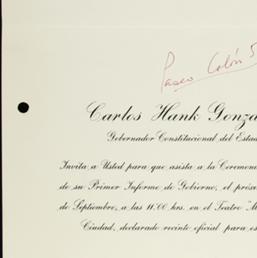 Paseo Colón 5
Carlos Hank Gonza
Gobernador Constitucional del Estad
Invita a Usted para que asista a la Ceremoni
de su Primer Informe de Gobierno, el próxi
de Septiembre, a las 11.00 hrs. en el Teatro "M
Ciudad, declarado recinto oficial para es